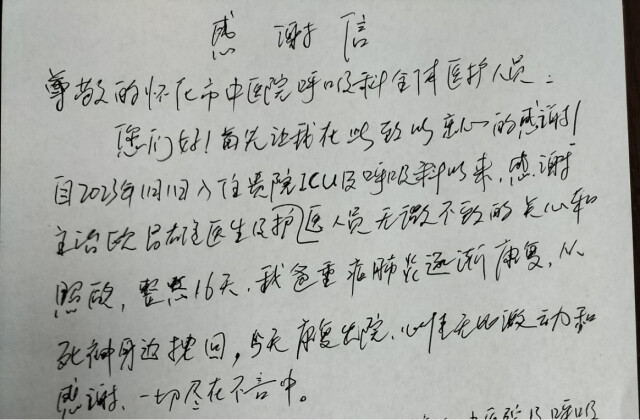 感谢信
尊敬的怀化市中医院呼吸科全体医护人员：
您们好！首先让我在此致以衷心的感谢！
自2023年1月1日入住贵院ICU及呼吸科以来，感谢
主治欧昌雄主医生及护医人员无微不致的关心和
照顾，整整16天，我爸重症肺炎逐渐康复，从
死神身边挽回，今天康复出院，心情无比激动和
感谢，一切尽在不言中。
中医院及呼吸